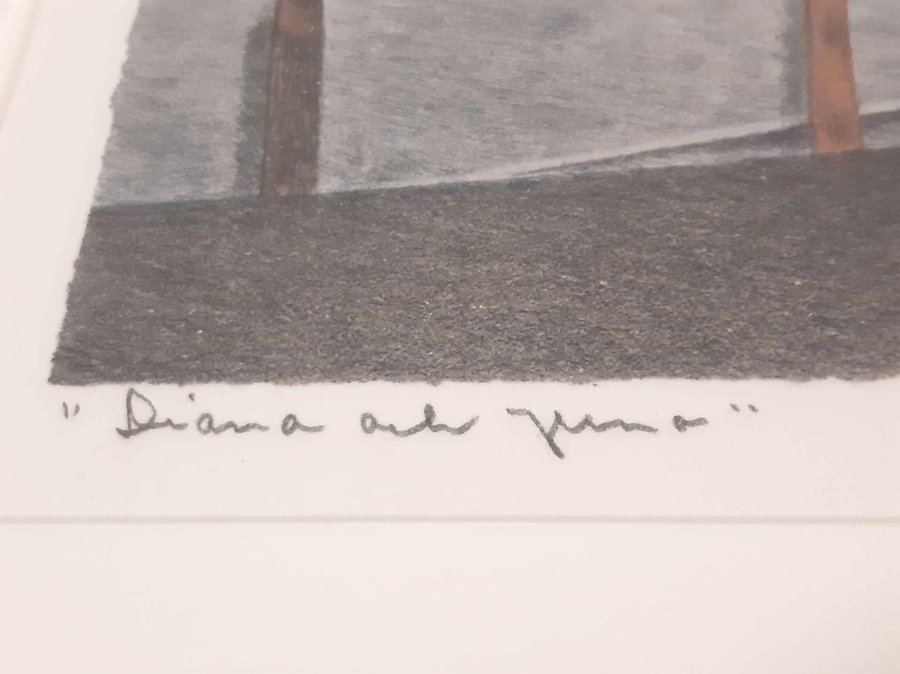 "Diana och Juno"